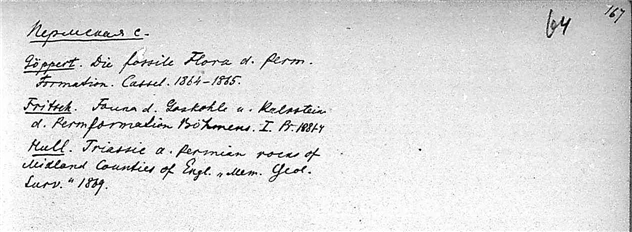 167
64
Пермская с.
Göppert. Die fossile Flora d. Perm.
Formation. Cassel. 1864–1865.
Fritsch. Fauna d. Gaskohle u. Kalkstein
d. Permformation Böhmens. I. Pr.
Hull. Triassic a. permian rocks of
Midland Counties of Engl. „Mem. Geol.
Surv." 1869.